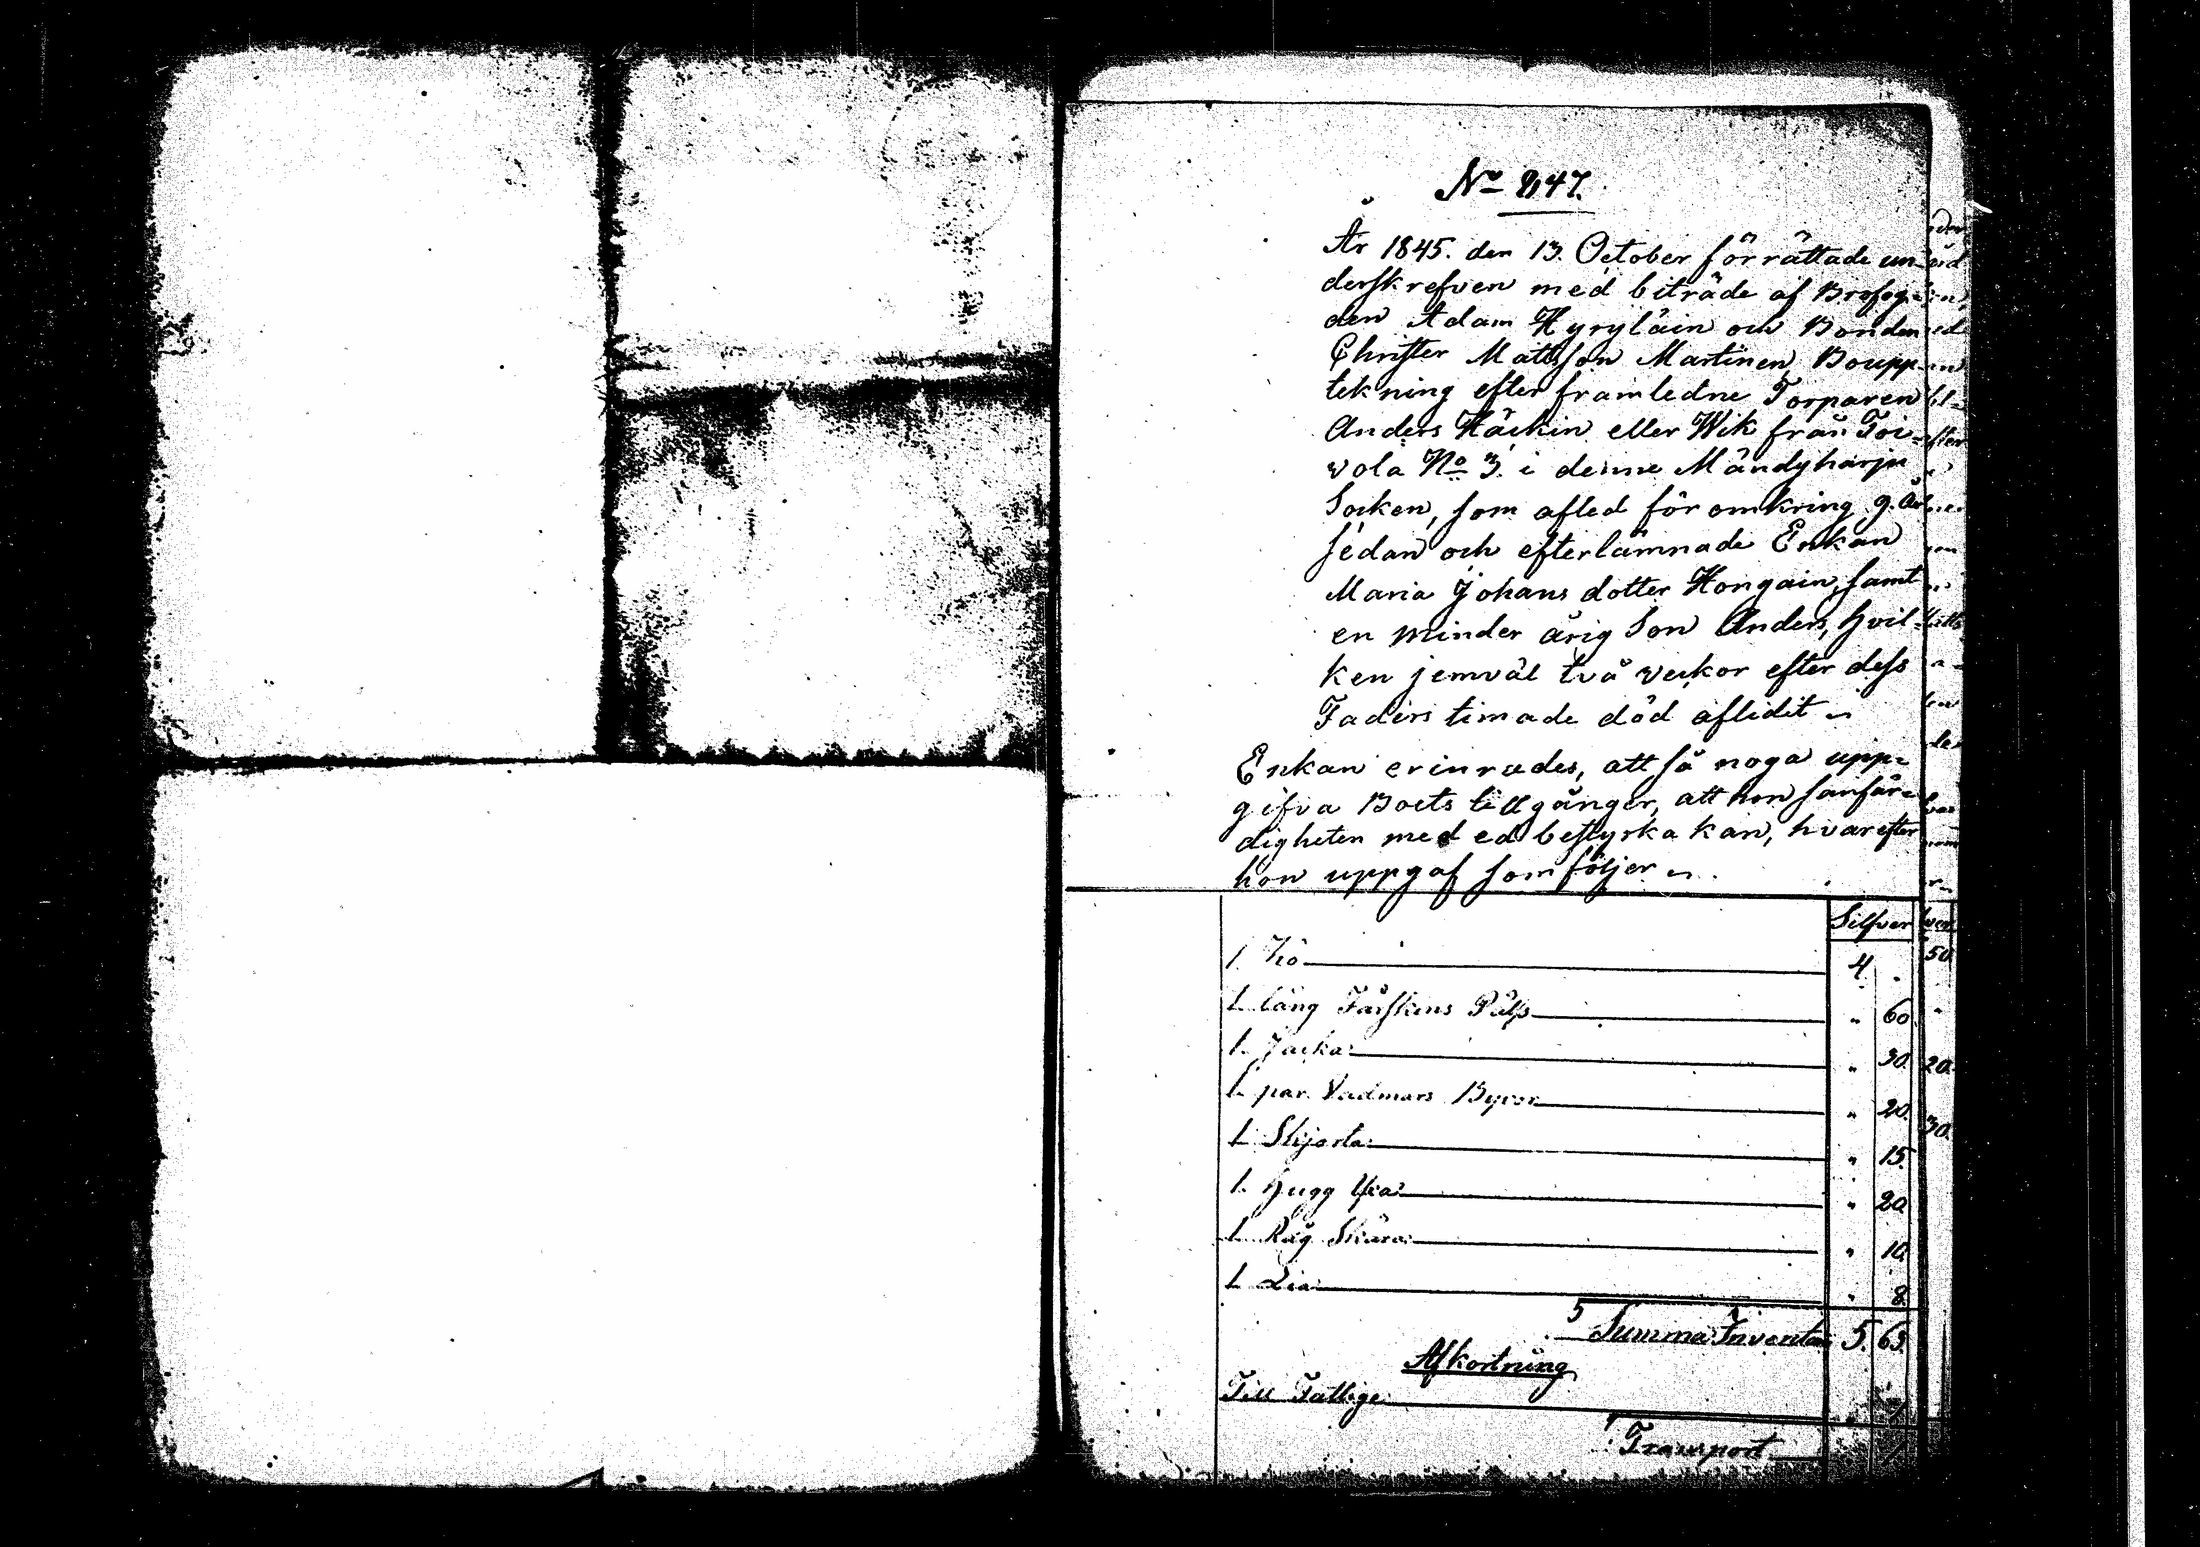 No 247.
År 1845. den 13. October förrättade un-
derskrefven med biträde af Brofog-
den Adam Hyryläin och Bonden
Christer Mattsson Martinen, Boupp-
tekning efter framledne Torparen
Anders Häckin eller Wik från Toi-
vola No 3. i denne Mändyharju
Socken, som afled för omkring 9. år
sedan och efterlämnade Enkan
Maria Johans dotter Hongain, samt
en minder årig Son Anders, hvil-
ken jemväl två veckor efter dess
Faders timade död aflidit
Enkan erinrades, att så noga upp-
gifva Boets tillgångar, att hon sanfär-
digheten med ed bestyrka kan, hvarefter
hon uppgaf som följer
Silfver
1. Ko 4 "
1. lång Fårskins Päls " 60
1. Jacka " 30.
1. par Vadmars Byxor " 20.
1. Skjorta " 15.
1. Hugg Yxa " 20
1. Råg Skära " 10.
1. Lia " 8.
Summa Inventar 5. 63.
Afkortning
Till Fattige
Transport